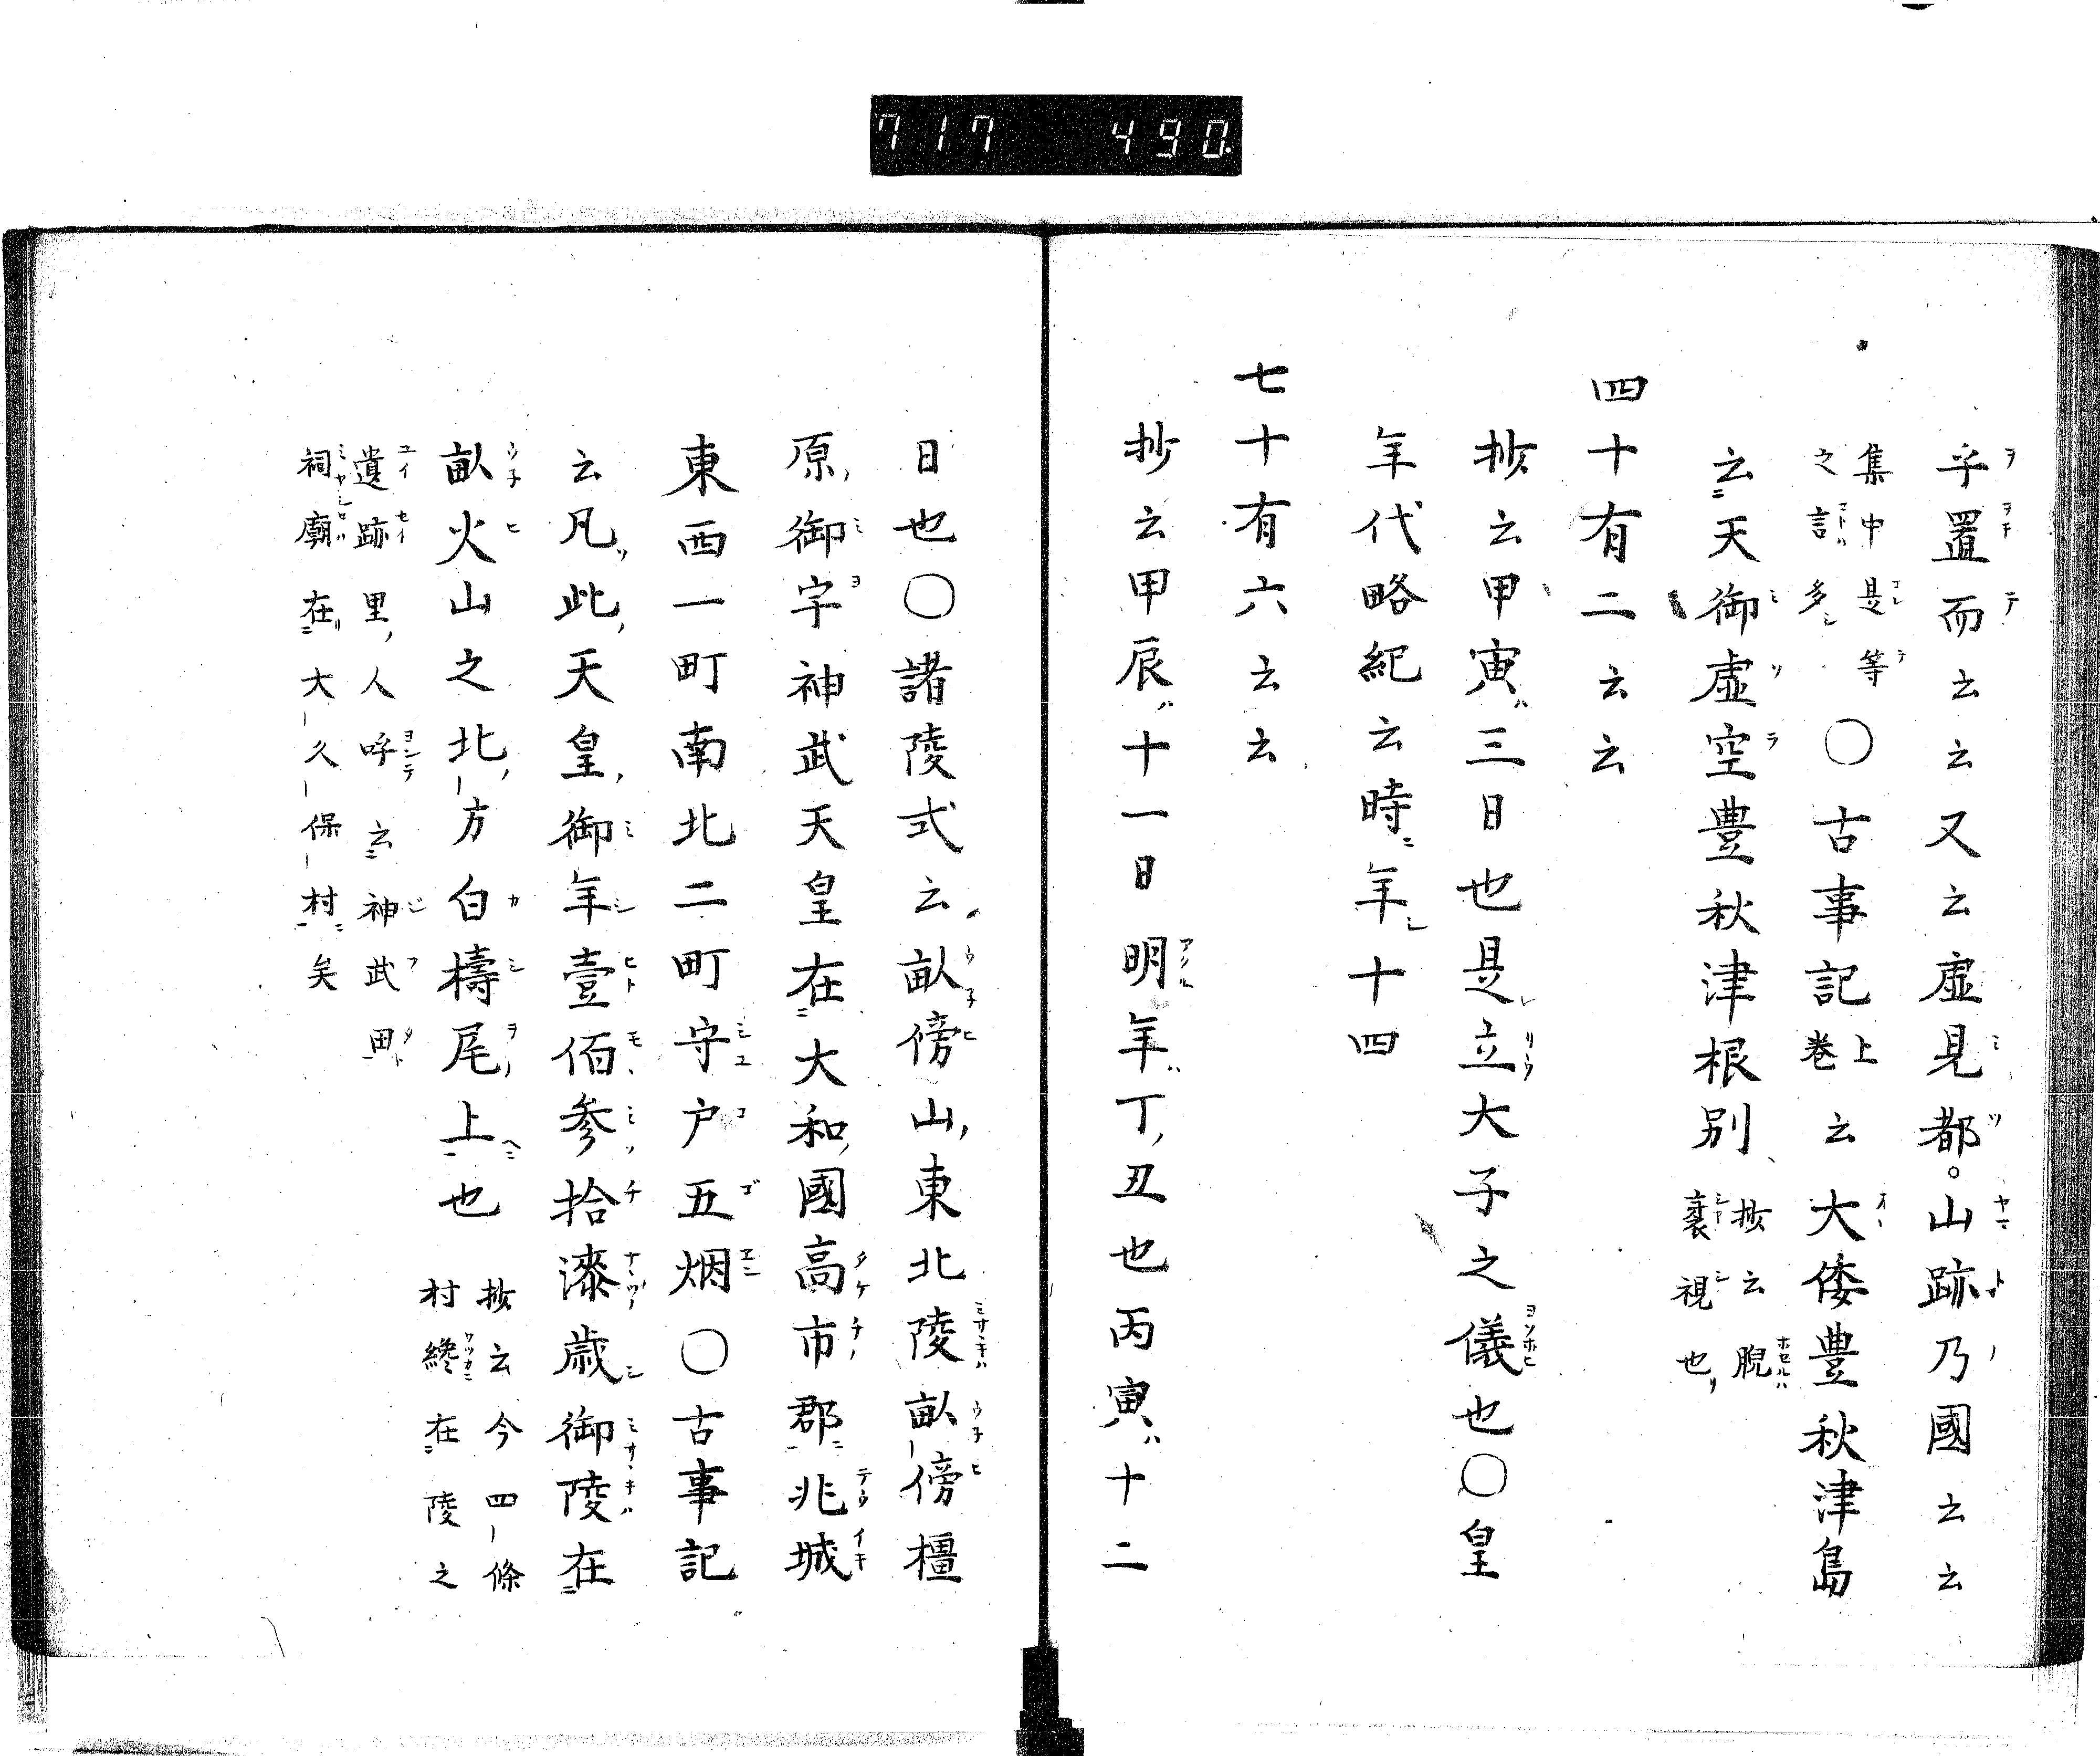 717 490
乎置而云云又云虛見都。山跡乃國云云
集中是等
之言多
〇古事記上卷云大倭豊秋津島
云天御虛空豊秋津根別
按云脫
衰視也
四十有二云云
抄云甲寅三日也是立大子之儀也〇皇
年代略紀云時年十四
七十有六云云
抄云甲辰十一日明年丁丑也丙寅十二
日也〇諸陵式云畝傍山東北陵畝傍橿
原御宇神武天皇在大和國高市郡兆域
東西一町南北二町守戸五烟〇古事記
云凡此天皇御年壹佰参拾漆歳御陵在
畝火山之北方白檮尾上也
按云今四條
村纔在陵之
遺跡里人呼云神武田
祠廟在大久保村矣